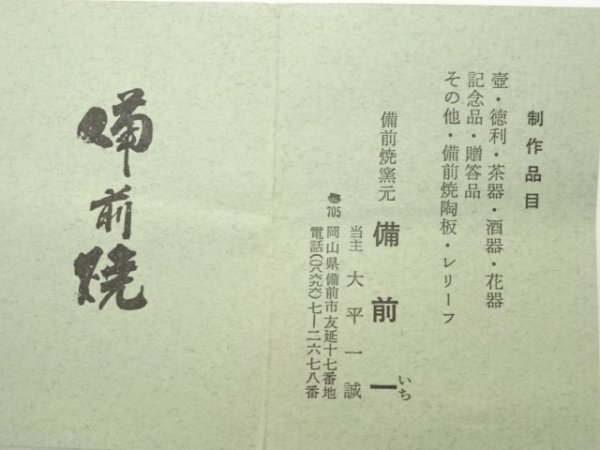 制作品目
壺・徳利・茶器・酒器・花器
記念品・贈答品
その他・備前焼陶板・レリーフ
備前焼窯元 備前一
いち
当主 大平一誠
705 岡山県備前市友延十七番地
電話(〇八六九六)七―二六七八番
備前焼